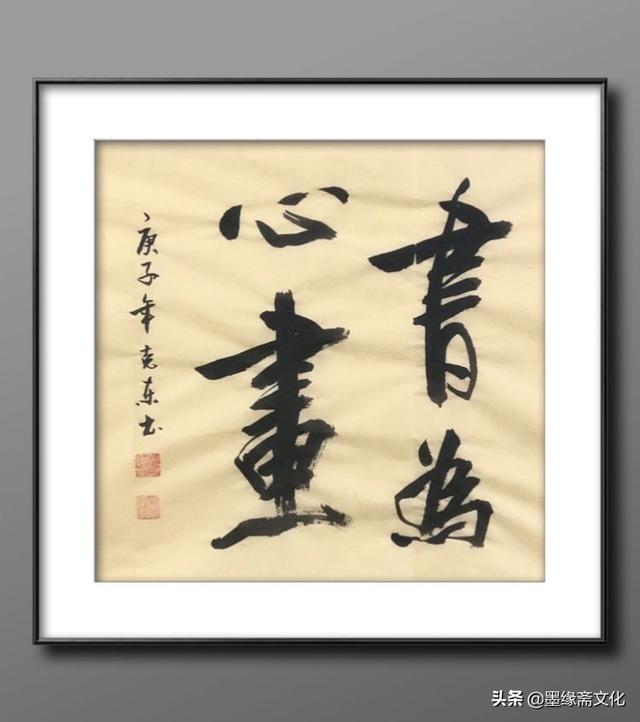 書為
心畫
庚子年克东书
头条 @墨缘斋文化